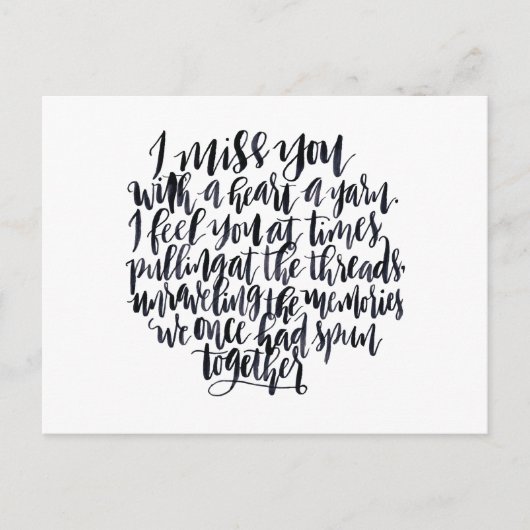 I miss you
with a heart a yarn.
I feel you at times
pulling at the threads,
unraveling the memories
we once had spun
together